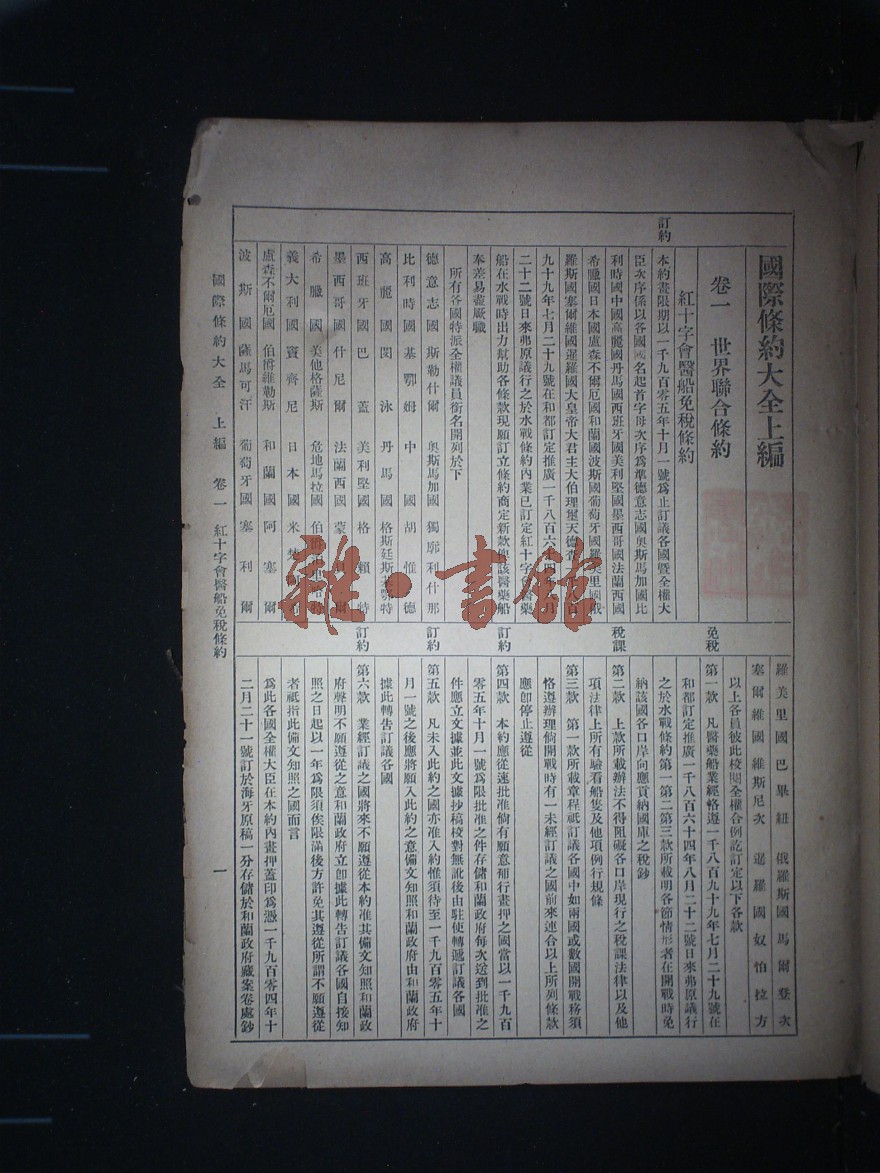 國際條約大全上編
卷一 世界聯合條約
紅十字會醫船免稅條約
訂約
本約畫限期以一千九百零五年十月一號為止訂議各國暨全權大
臣次序係以各國國名起首字母次序為準德意志國奧斯馬加國比
利時國中國高麗國丹馬國西班牙國美利堅國墨西哥國法蘭西國
希臘國日本國盧森不爾厄國和蘭國波斯國葡萄牙國羅美里國俄
羅斯國塞爾維國暹羅國大皇帝大君主大伯理璽天德
九十九年七月二十九號在和都訂定推廣一千八百六十四年八月
二十二號日來弗原議行之於水戰條約內業已訂定紅十字會醫藥
船在水戰時出力幫助各條款現願訂立條約商定新款使該醫藥船
奉差易盡厥職
所有各國特派全權議員銜名開列於下
德意志國 斯勒什爾 奧斯馬加國 獨廓利什那
比利時國 基鄂姆 中國 胡惟德
高麗國 閔泳 丹馬國 格斯廷斯
西班牙國 巴蓋 美利堅國 格賴特
墨西哥國 什尼爾 法蘭西國 蒙 爾
希臘國 美他格薩斯 危地馬拉國 伯爵
義大利國 賓齊尼 日本國 米
盧森不爾厄國 伯爵維勒斯 和蘭國 阿塞爾
波斯國 薩馬可汗 葡萄牙國 塞利爾
羅美里國 巴畢紐 俄羅斯國 馬爾登次
塞爾維國 維斯尼次 暹羅國 奴怕拉方
以上各員彼此校閱全權合例訖訂定以下各款
免稅
第一款 凡醫藥船業經恪遵一千八百九十九年七月二十九號在
和都訂定推廣一千八百六十四年八月二十二號日來弗原議行
之於水戰條約第一第二第三款所載明各節情形者在開戰時免
納該國各口岸向應貢納國庫之稅鈔
稅課
第二款 上款所載辦法不得阻礙各口岸現行之稅課法律以及他
項法律上所有驗看船隻及他項例行規條
第三款 第一款所載章程祗訂議各國中如兩國或數國開戰務須
恪遵辦理倘開戰時有一未經訂議之國前來連合以上所列條款
應卽停止遵從
訂約
第四款 本約應從速批准倘有願意補行畫押之國當以一千九百
零五年十月一號為限批准之件存儲和蘭政府每次送到批准之
件應立文據並此文據抄稿校對無訛後由駐使轉遞訂議各國
訂約
第五款 凡未入此約之國亦准入約惟須待至一千九百零五年十
月一號之後應將願入此約之意備文知照和蘭政府由和蘭政府
據此轉告訂議各國
訂約
第六款 業經訂議之國將來不願遵從本約准其備文知照和蘭政
府聲明不願遵從之意和蘭政府立卽據此轉告訂議各國自接知
照之日起以一年為限須俟限滿後方許免其遵從所謂不願遵從
者祗指此備文知照之國而言
為此各國全權大臣在本約內畫押蓋印為憑一千九百零四年十
二月二十一號訂於海牙原稿一分存儲於和蘭政府藏案卷處鈔
國際條約大全 上編 卷一 紅十字會醫船免稅條約 一
雜·書館